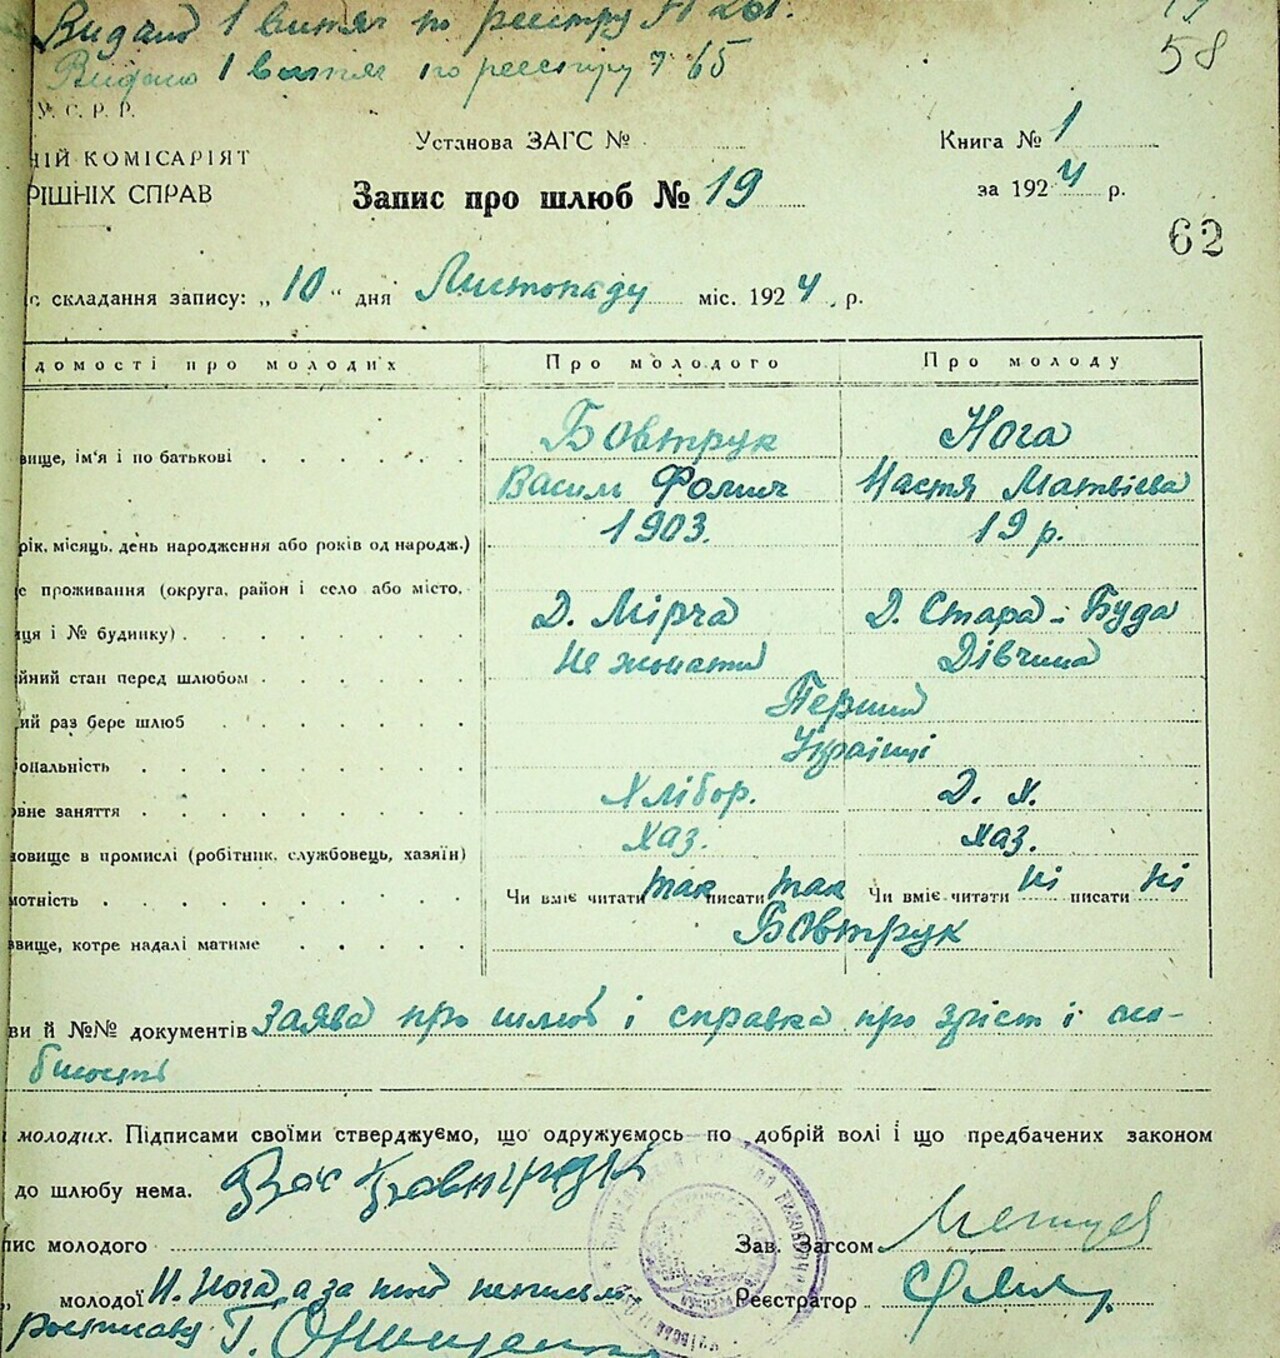 Видано 1 витяг по реєстру № 261.
58
Видано 1 витяг по реєстру № 65
У. С. Р. Р.
Установа ЗАГС №
Книга № 1
НІЙ КОМІСАРІЯТ
РІШНІХ СПРАВ
Запис про шлюб № 19
за 1924 р.
62
с складання запису: „10“ дня Листопаду міс. 1924 р.
домості про молодих Про молодого Про молоду
вище, ім'я і по батькові Бовтрук Нога
Василь Фомич Настя Матвієва
рік, місяць, день народження або років од народж.) 1903. 19 р.
е проживання (округа, район і село або місто,
ця і № будинку) Д. Мірча Д. Стара-Буда
йний стан перед шлюбом Не жонатий Дівчина
ий раз бере шлюб Перший
ональність Українці
вне заняття Хлібор. Д. Х.
овище в промислі (робітник, службовець, хазяїн) хаз. хаз.
мотність Чи вміє читати так писати так Чи вміє читати ні писати ні
звище, котре надалі матиме Бовтрук
ви й №№ документів Заява про шлюб і справка про зріст і
молодих. Підписами своїми стверджуємо, що одружуємось по добрій волі і що предбачених законом
до шлюбу нема. Вас Бовтрук
пис молодого Зав. Загсом
молодої Н. Нога а за
Реєстратор